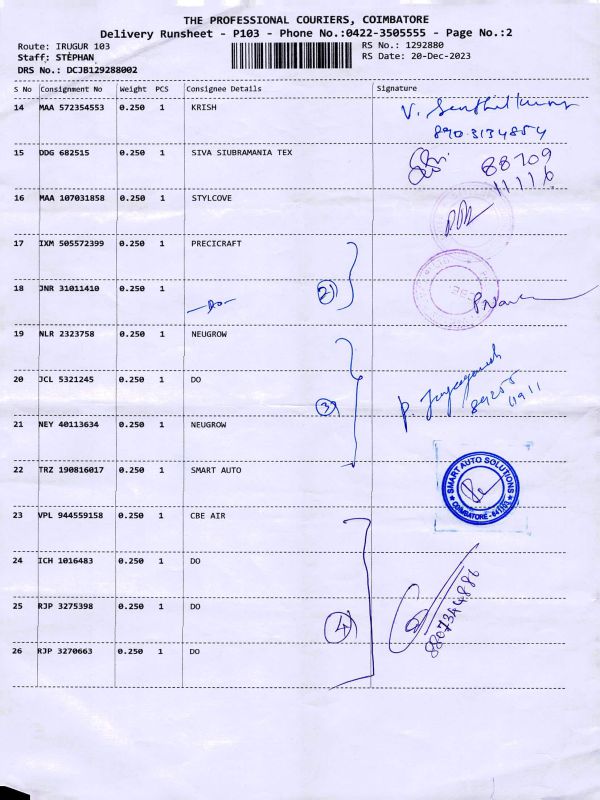 THE PROFESSIONAL COURIERS, COIMBATORE
Delivery Runsheet - P103 - Phone No.:0422-3505555 - Page No.:2
Route: IRUGUR 103 RS No.: 1292880
Staff: STEPHAN RS Date: 20-Dec-2023
DRS No.: DCJB129288002
S No Consignment No Weight PCS Consignee Details Signature
14 MAA 572354553 0.250 1 KRISH
V. Senthilkumar
8903134854
15 DDG 682515 0.250 1 SIVA SIUBRAMANIA TEX
88709
11116
16 MAA 107031858 0.250 1 STYLCOVE
17 IXM 505572399 0.250 1 PRECICRAFT
18 JNR 31011410 0.250 1
-DO- 2
19 NLR 2323758 0.250 1 NEUGROW
20 JCL 5321245 0.250 1 DO
3
89255
0911
21 NEY 40113634 0.250 1 NEUGROW
22 TRZ 190816017 0.250 1 SMART AUTO
SMART AUTO SOLUTIONS
COIMBATORE
23 VPL 944559158 0.250 1 CBE AIR
24 ICH 1016483 0.250 1 DO
25 RJP 3275398 0.250 1 DO
4
26 RJP 3270663 0.250 1 DO